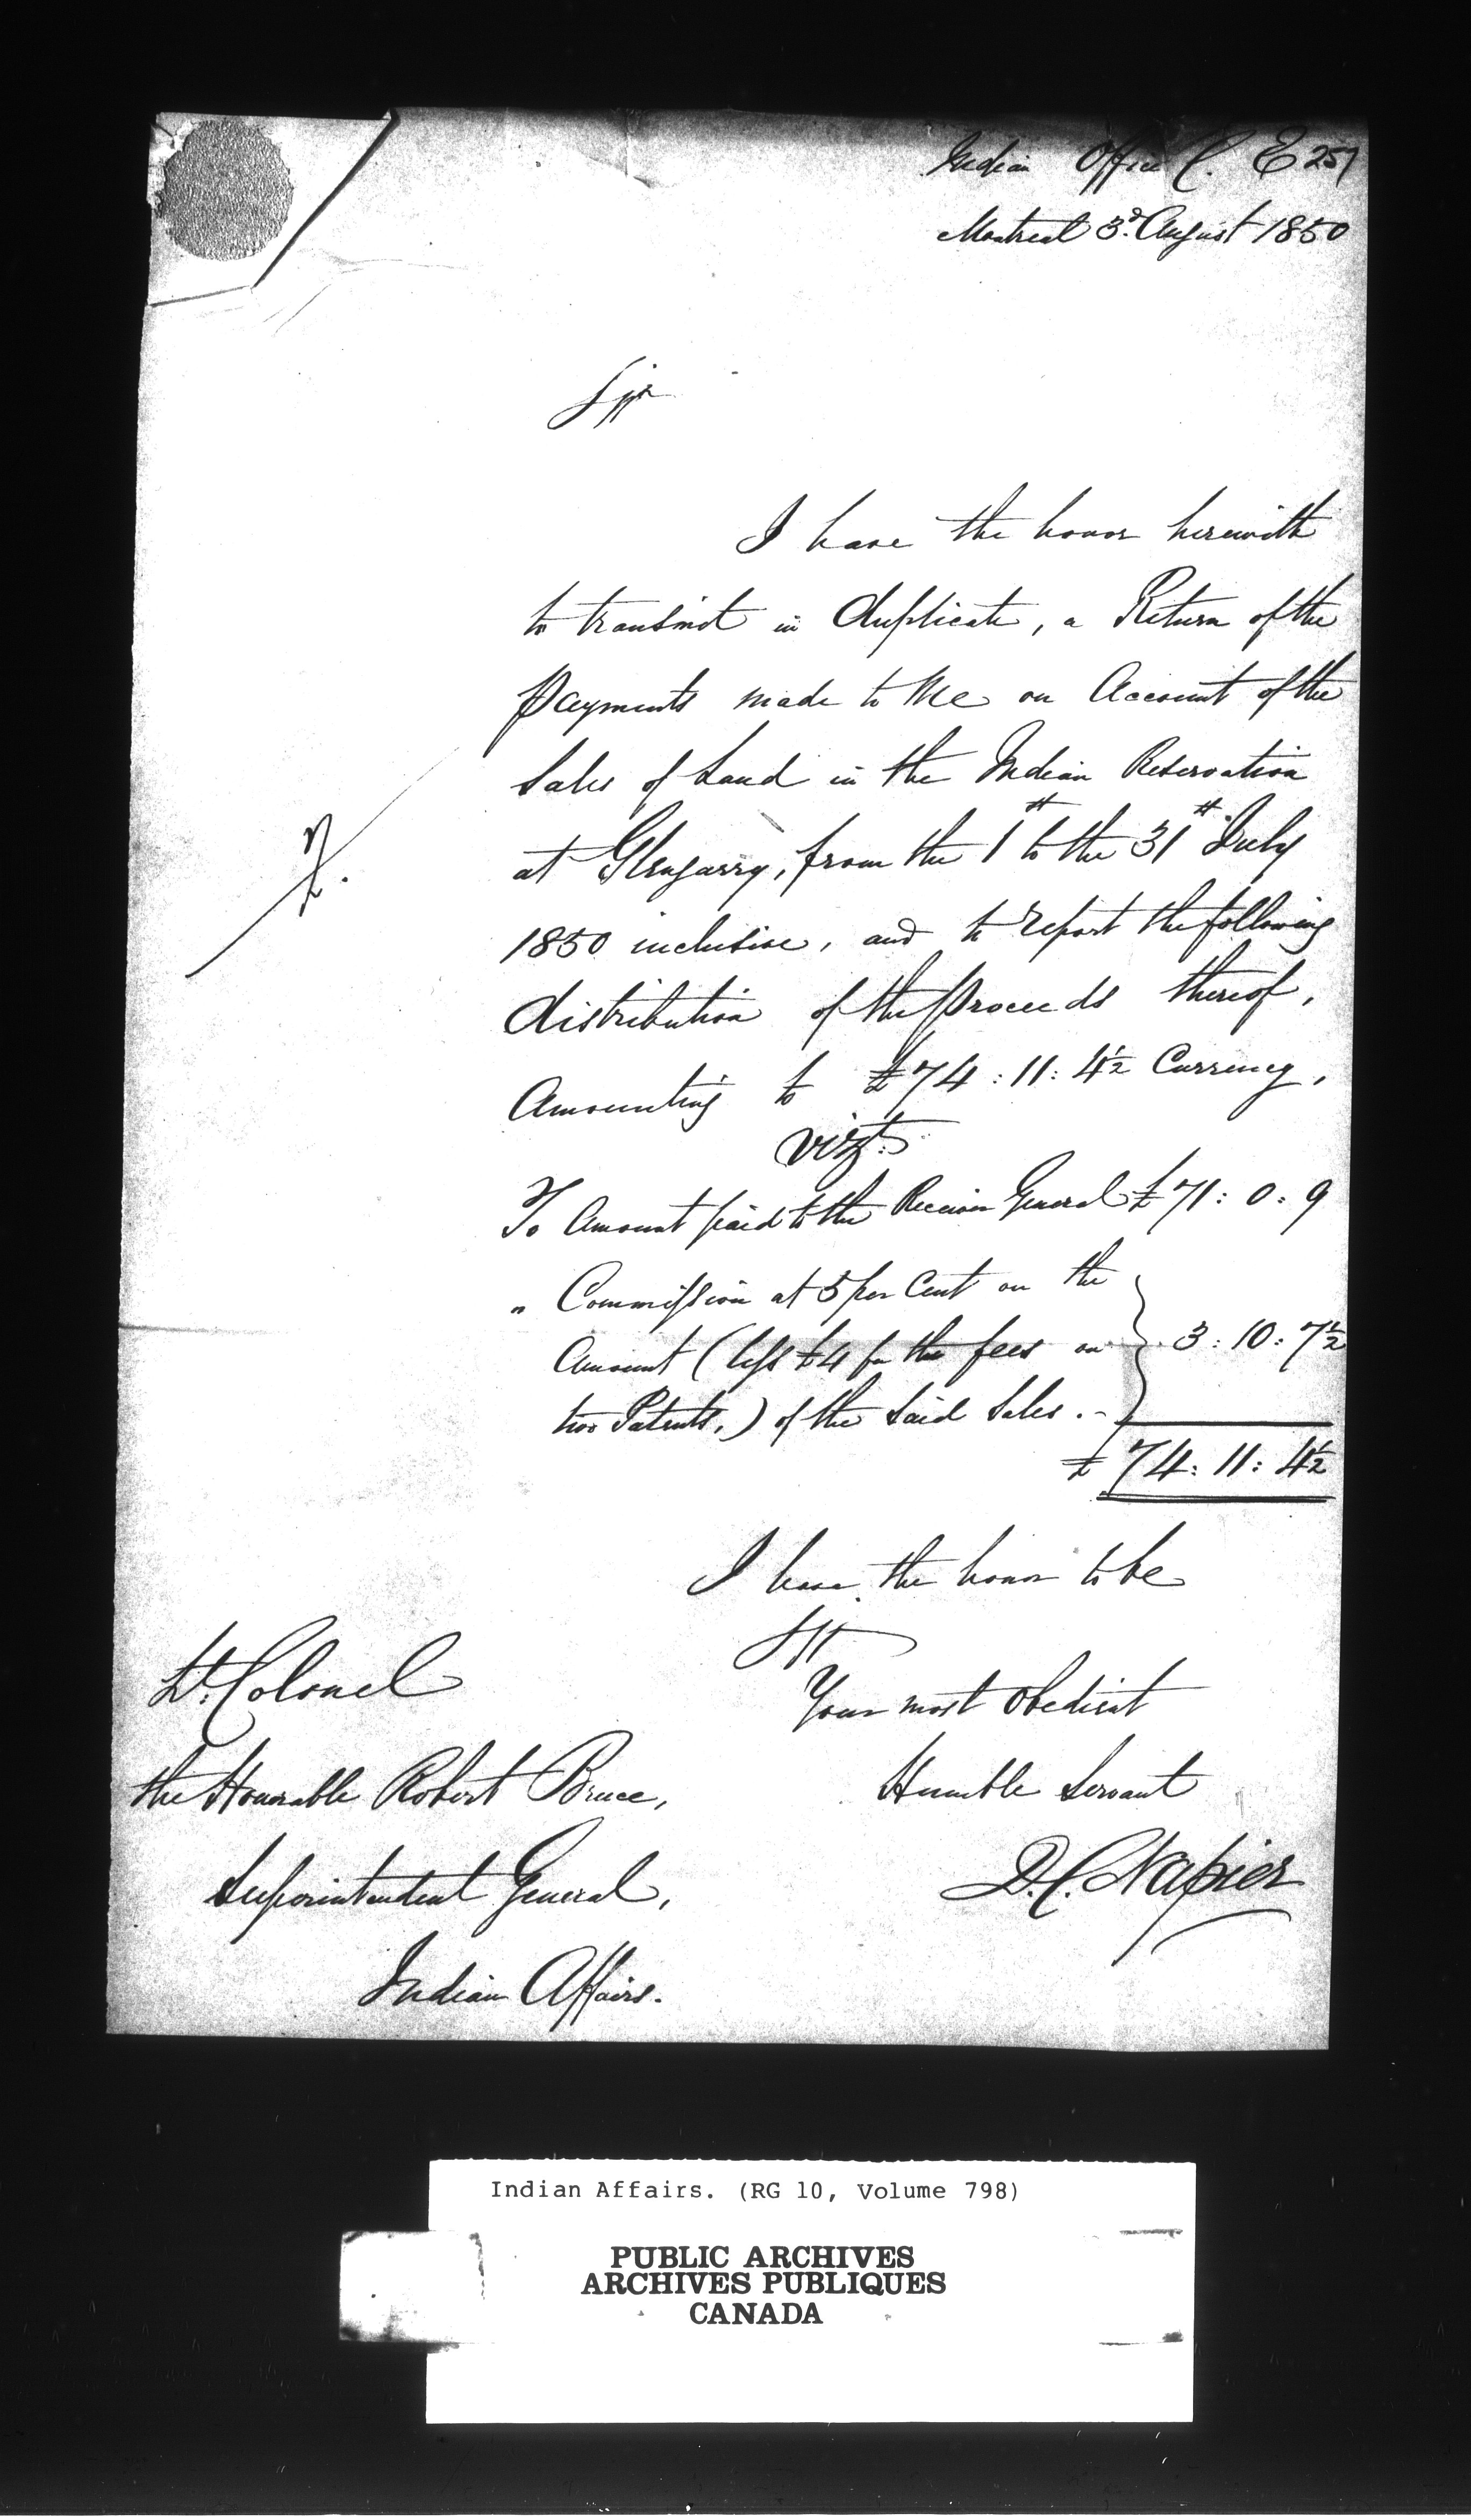 Indian Office C. E 257
Montreal 3d. August 1850
Sir
I have the honor herewith
to transmit in duplicate, a Return of the
payments made to me on Account of the
Sales of Land in the Indian Reservation
at Glengarry, from the 1st to the 31st July
1850 inclusive, and to report the following
distribution of the proceeds thereof,
Amounting to £74:11:4½ Currency,
vizt:
To Amount paid to the Receiver General £71:0:9
" Commission at 5 per Cent on the
Amount (less £4 for the fees on 3:10:7½
two Patents.) of the said Sales.
£74:11:4½
I have the honor to be
Sir
Your most obedient
Humble Servant
D.C. Napier
Lt. Colonel
the Honorable Robert Bruce,
Superintendent General,
Indian Affairs.
Indian Affairs. (RG 10, Volume 798)
PUBLIC ARCHIVES
ARCHIVES PUBLIQUES
CANADA